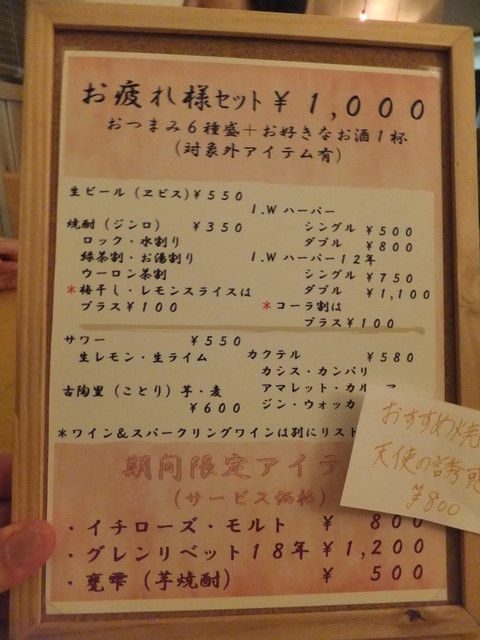 お疲れ様セット￥１,０００
おつまみ６種盛＋お好きなお酒１杯
（対象外アイテム有）
生ビール（ヱビス）￥５５０
焼酎（ジンロ） ￥３５０
ロック・水割り
緑茶割・お湯割り
ウーロン茶割
*梅干し・レモンスライスは
プラス￥１００
I.W ハーパー
シングル ￥５００
ダブル ￥８００
I.W ハーパー１２年
シングル ￥７５０
ダブル ￥１,１００
*コーラ割は
プラス￥１００
サワー ￥５５０
生レモン・生ライム
古陶里（ことり）芋・麦
￥６００
カクテル ￥５８０
カシス・カンパリ
アマレット・カル
ジン・ウォッカ
*ワイン＆スパークリングワインは別にリスト
おすすめ焼
天使の誘惑
¥800
期間限定アイテ
（サービス価格）
・イチローズ・モルト ￥ ８００
・グレンリベット１８年 ￥１,２００
・甕雫（芋焼酎） ￥ ５００